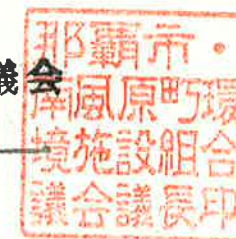 議会
那覇市・
南風原町環
境施設組合
議会議長印